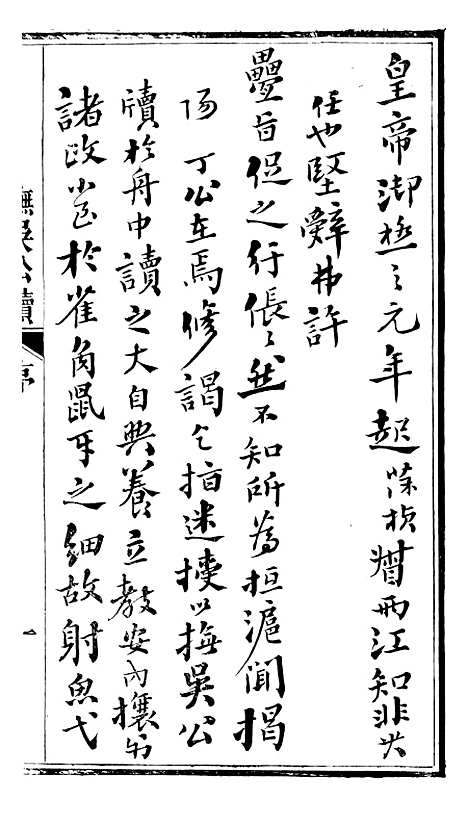 皇帝御極之元年超葆楨督兩江知非其
任也堅辭弗許
疊旨促之行倀倀然不知所為抵滬聞揭
陽丁公在焉修謁乞指迷授以撫吳公
牘於舟中讀之大自典養立教安內攘外
諸政小至於雀角鼠牙之細故射魚弋
撫吳公牘 序 一